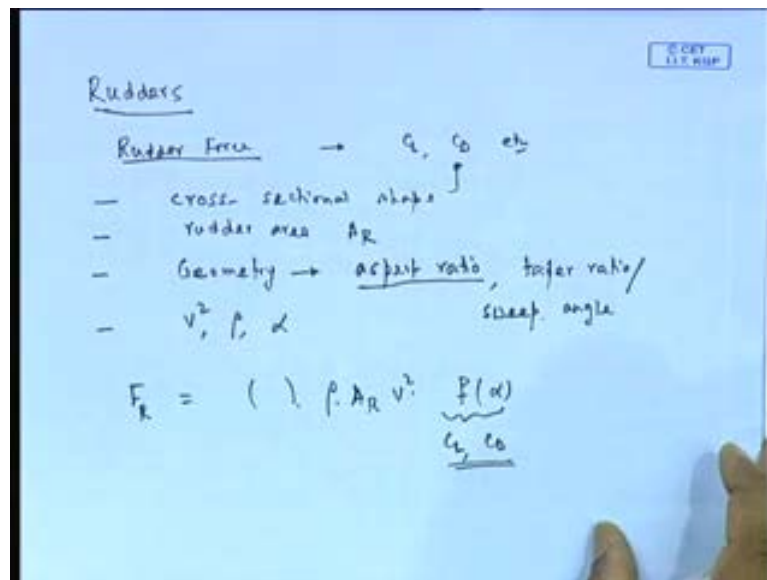 © CET
I.I.T. KGP
Rudders
Rudder Force → C_L, C_D etc
— cross-sectional shape
— rudder area A_R
— Geometry → aspect ratio, taper ratio/
sweep angle
— V², ρ, α
F_R = ( ). ρ. A_R V². f(α)
C_L, C_D